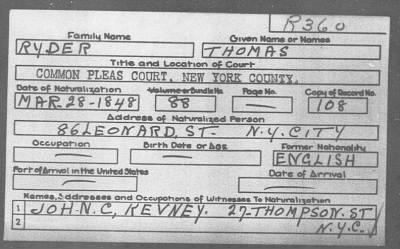 R360
Family Name Given Name or Names
RYDER THOMAS
Title and Location of Court
COMMON PLEAS COURT, NEW YORK COUNTY.
Date of Naturalization Volume or Bundle No. Page No. Copy of Record No.
MAR-28-1848 88 — 108
Address of Naturalized Person
86 LEONARD, ST. N.Y. CITY
Occupation Birth Date or Age Former Nationality
— — ENGLISH
Port of Arrival in the United States Date of Arrival
— —
Names, Addresses and Occupations of Witnesses To Naturalization
1 JOHN. C, KEVNEY. 27-THOMPSON. ST
2 N.Y.C.